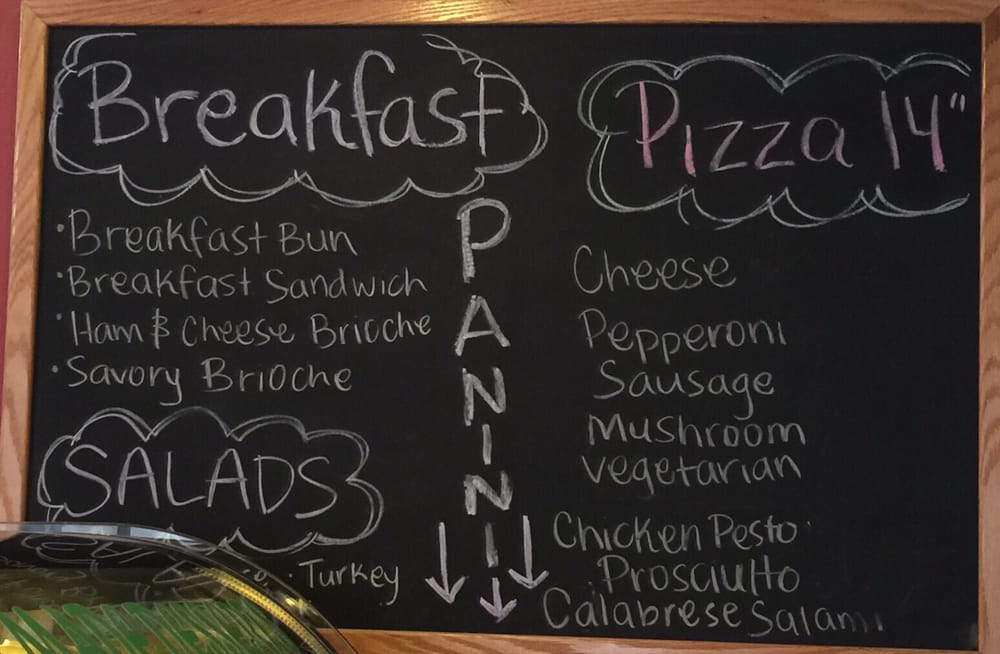 Breakfast
·Breakfast Bun
·Breakfast Sandwich
·Ham & Cheese Brioche
·Savory Brioche
SALADS
· Turkey
PANINI
Pizza 14"
Cheese
Pepperoni
Sausage
Mushroom
vegetarian
Chicken Pesto
Prosciutto
Calabrese Salami